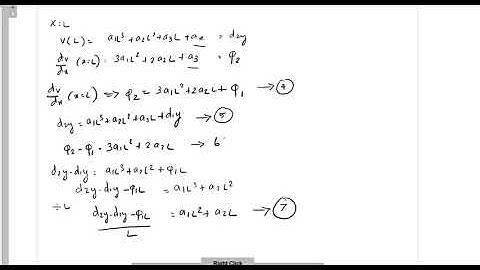 x=L
v(L) = a₁L³+a₂L²+a₃L+a₄ = d₂y
dv/dx (x=L) = 3a₁L²+2a₂L+a₃ = φ₂
dv/dx (x=L) => φ₂ = 3a₁L²+2a₂L+φ₁ → 4
d₂y = a₁L³+a₂L²+a₃L+d₁y → 5
φ₂-φ₁ = 3a₁L²+2a₂L → 6
d₂y-d₁y = a₁L³+a₂L²+φ₁L
d₂y-d₁y-φ₁L = a₁L³+a₂L²
÷L (d₂y-d₁y-φ₁L)/L = a₁L²+a₂L → 7
Right Click